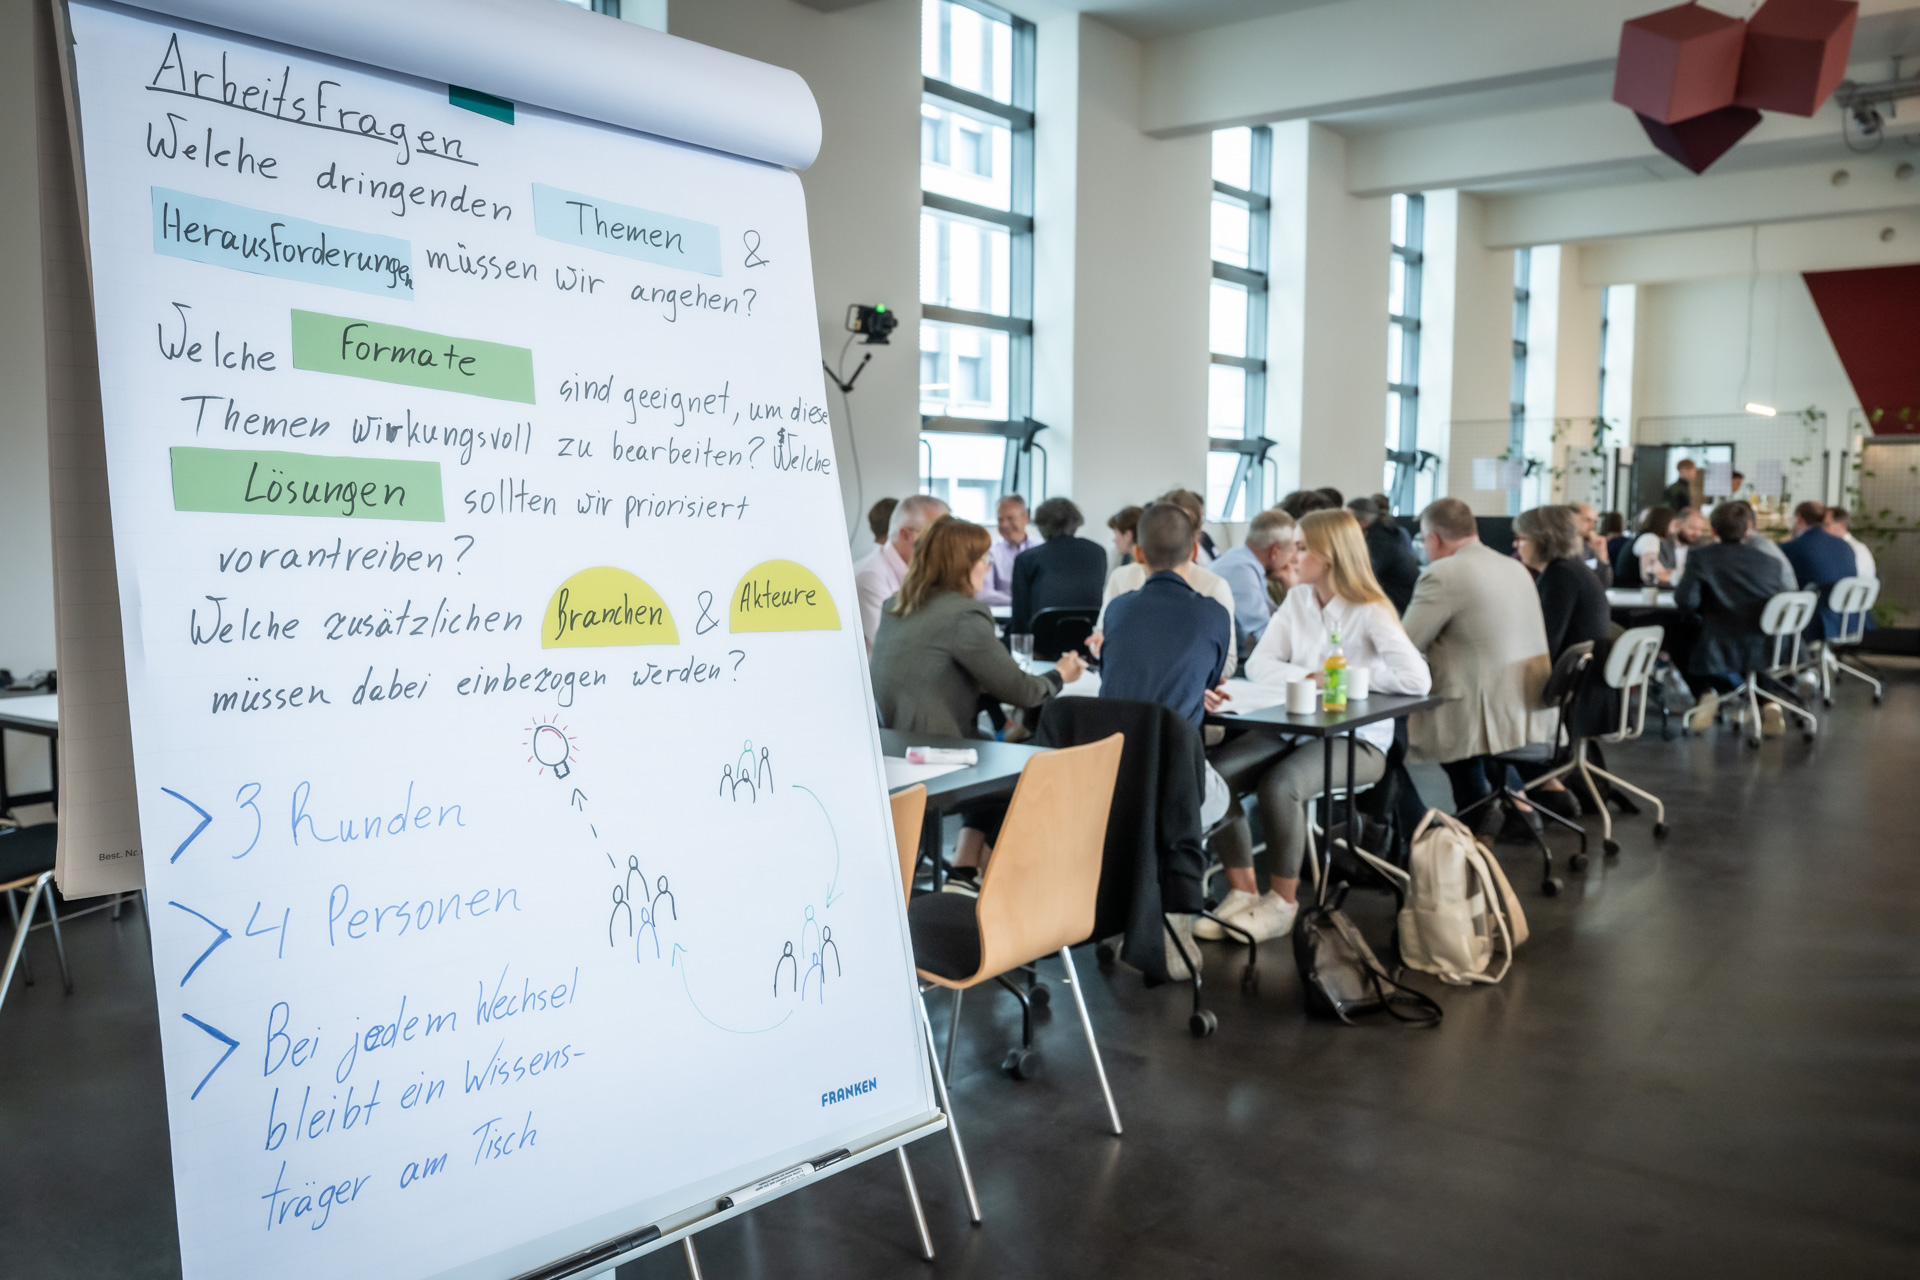 Arbeitsfragen
Welche dringenden Themen &
Herausforderungen müssen wir angehen?
Welche Formate sind geeignet, um diese
Themen wirkungsvoll zu bearbeiten? Welche
Lösungen sollten wir priorisiert
vorantreiben?
Welche zusätzlichen Branchen & Akteure
müssen dabei einbezogen werden?
> 3 Runden
> 4 Personen
> Bei jedem Wechsel
bleibt ein Wissens-
träger am Tisch
Best. Nr.
FRANKEN